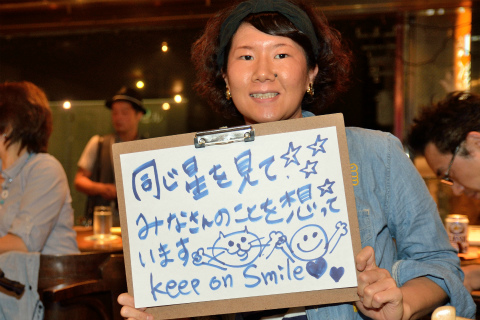 同じ星を見て☆☆
みなさんのことを想って☆
います
keep on Smile♥♥